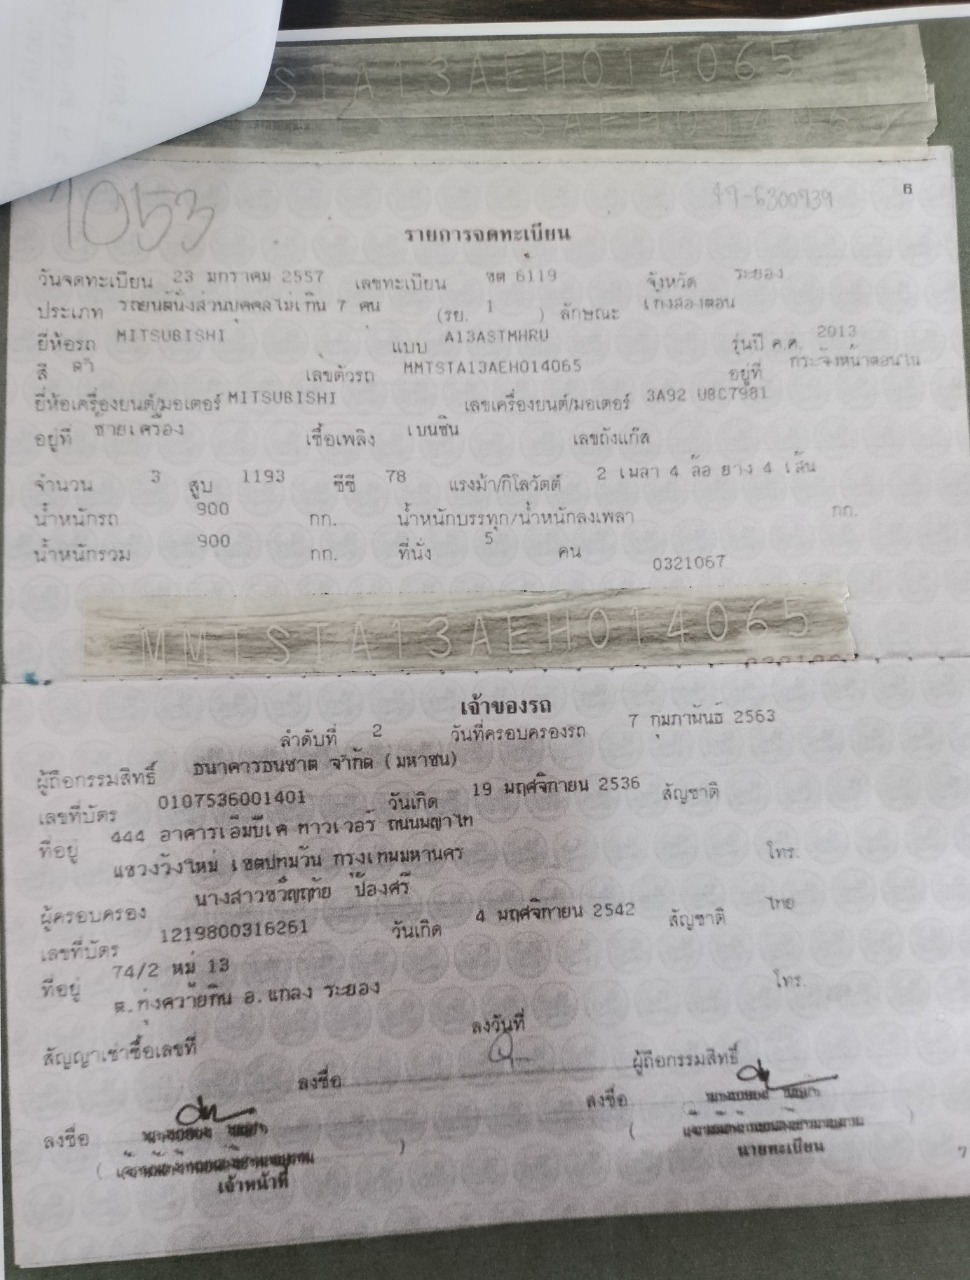 STA13AEH014065
1053
6
รายการจดทะเบียน
วันจดทะเบียน 23 มกราคม 2557 เลขทะเบียน ขต 6119 จังหวัด ระยอง
ประเภท รถยนต์นั่งส่วนบุคคลไม่เกิน 7 คน (รย. 1 ) ลักษณะ เก๋งสองตอน
ยี่ห้อรถ MITSUBISHI แบบ A13ASTMHRU รุ่นปี ค.ศ. 2013
สี ดำ เลขตัวรถ MMTSTA13AEH014065 อยู่ที่ กระจังหน้าตอนใน
ยี่ห้อเครื่องยนต์/มอเตอร์ MITSUBISHI เลขเครื่องยนต์/มอเตอร์ 3A92 UBC7981
อยู่ที่ ซ้ายเครื่อง เชื้อเพลิง เบนซิน เลขถังแก๊ส
จำนวน 3 สูบ 1193 ซีซี 78 แรงม้า/กิโลวัตต์ 2 เพลา 4 ล้อ ยาง 4 เส้น
น้ำหนักรถ 900 กก. น้ำหนักบรรทุก/น้ำหนักลงเพลา กก.
น้ำหนักรวม 900 กก. ที่นั่ง 5 คน
0321067
MMTSTA13AEH014065
เจ้าของรถ
ลำดับที่ 2 วันที่ครอบครองรถ 7 กุมภาพันธ์ 2563
ผู้ถือกรรมสิทธิ์ ธนาคารธนชาต จำกัด (มหาชน)
เลขที่บัตร 0107536001401 วันเกิด 19 พฤศจิกายน 2536 สัญชาติ
ที่อยู่ 444 อาคารเอ็มบีเค ทาวเวอร์ ถนนพญาไท
แขวงวังใหม่ เขตปทุมวัน กรุงเทพมหานคร โทร.
ผู้ครอบครอง นางสาวขวัญฤทัย ป้องศรี
เลขที่บัตร 1219800316261 วันเกิด 4 พฤศจิกายน 2542 สัญชาติ ไทย
ที่อยู่ 74/2 หมู่ 13
ต.ทุ่งควายกิน อ.แกลง ระยอง โทร.
สัญญาเช่าซื้อเลขที่ ลงวันที่
ลงชื่อ ผู้ถือกรรมสิทธิ์
ลงชื่อ ลงชื่อ
( ) ( )
เจ้าหน้าที่ นายทะเบียน
7